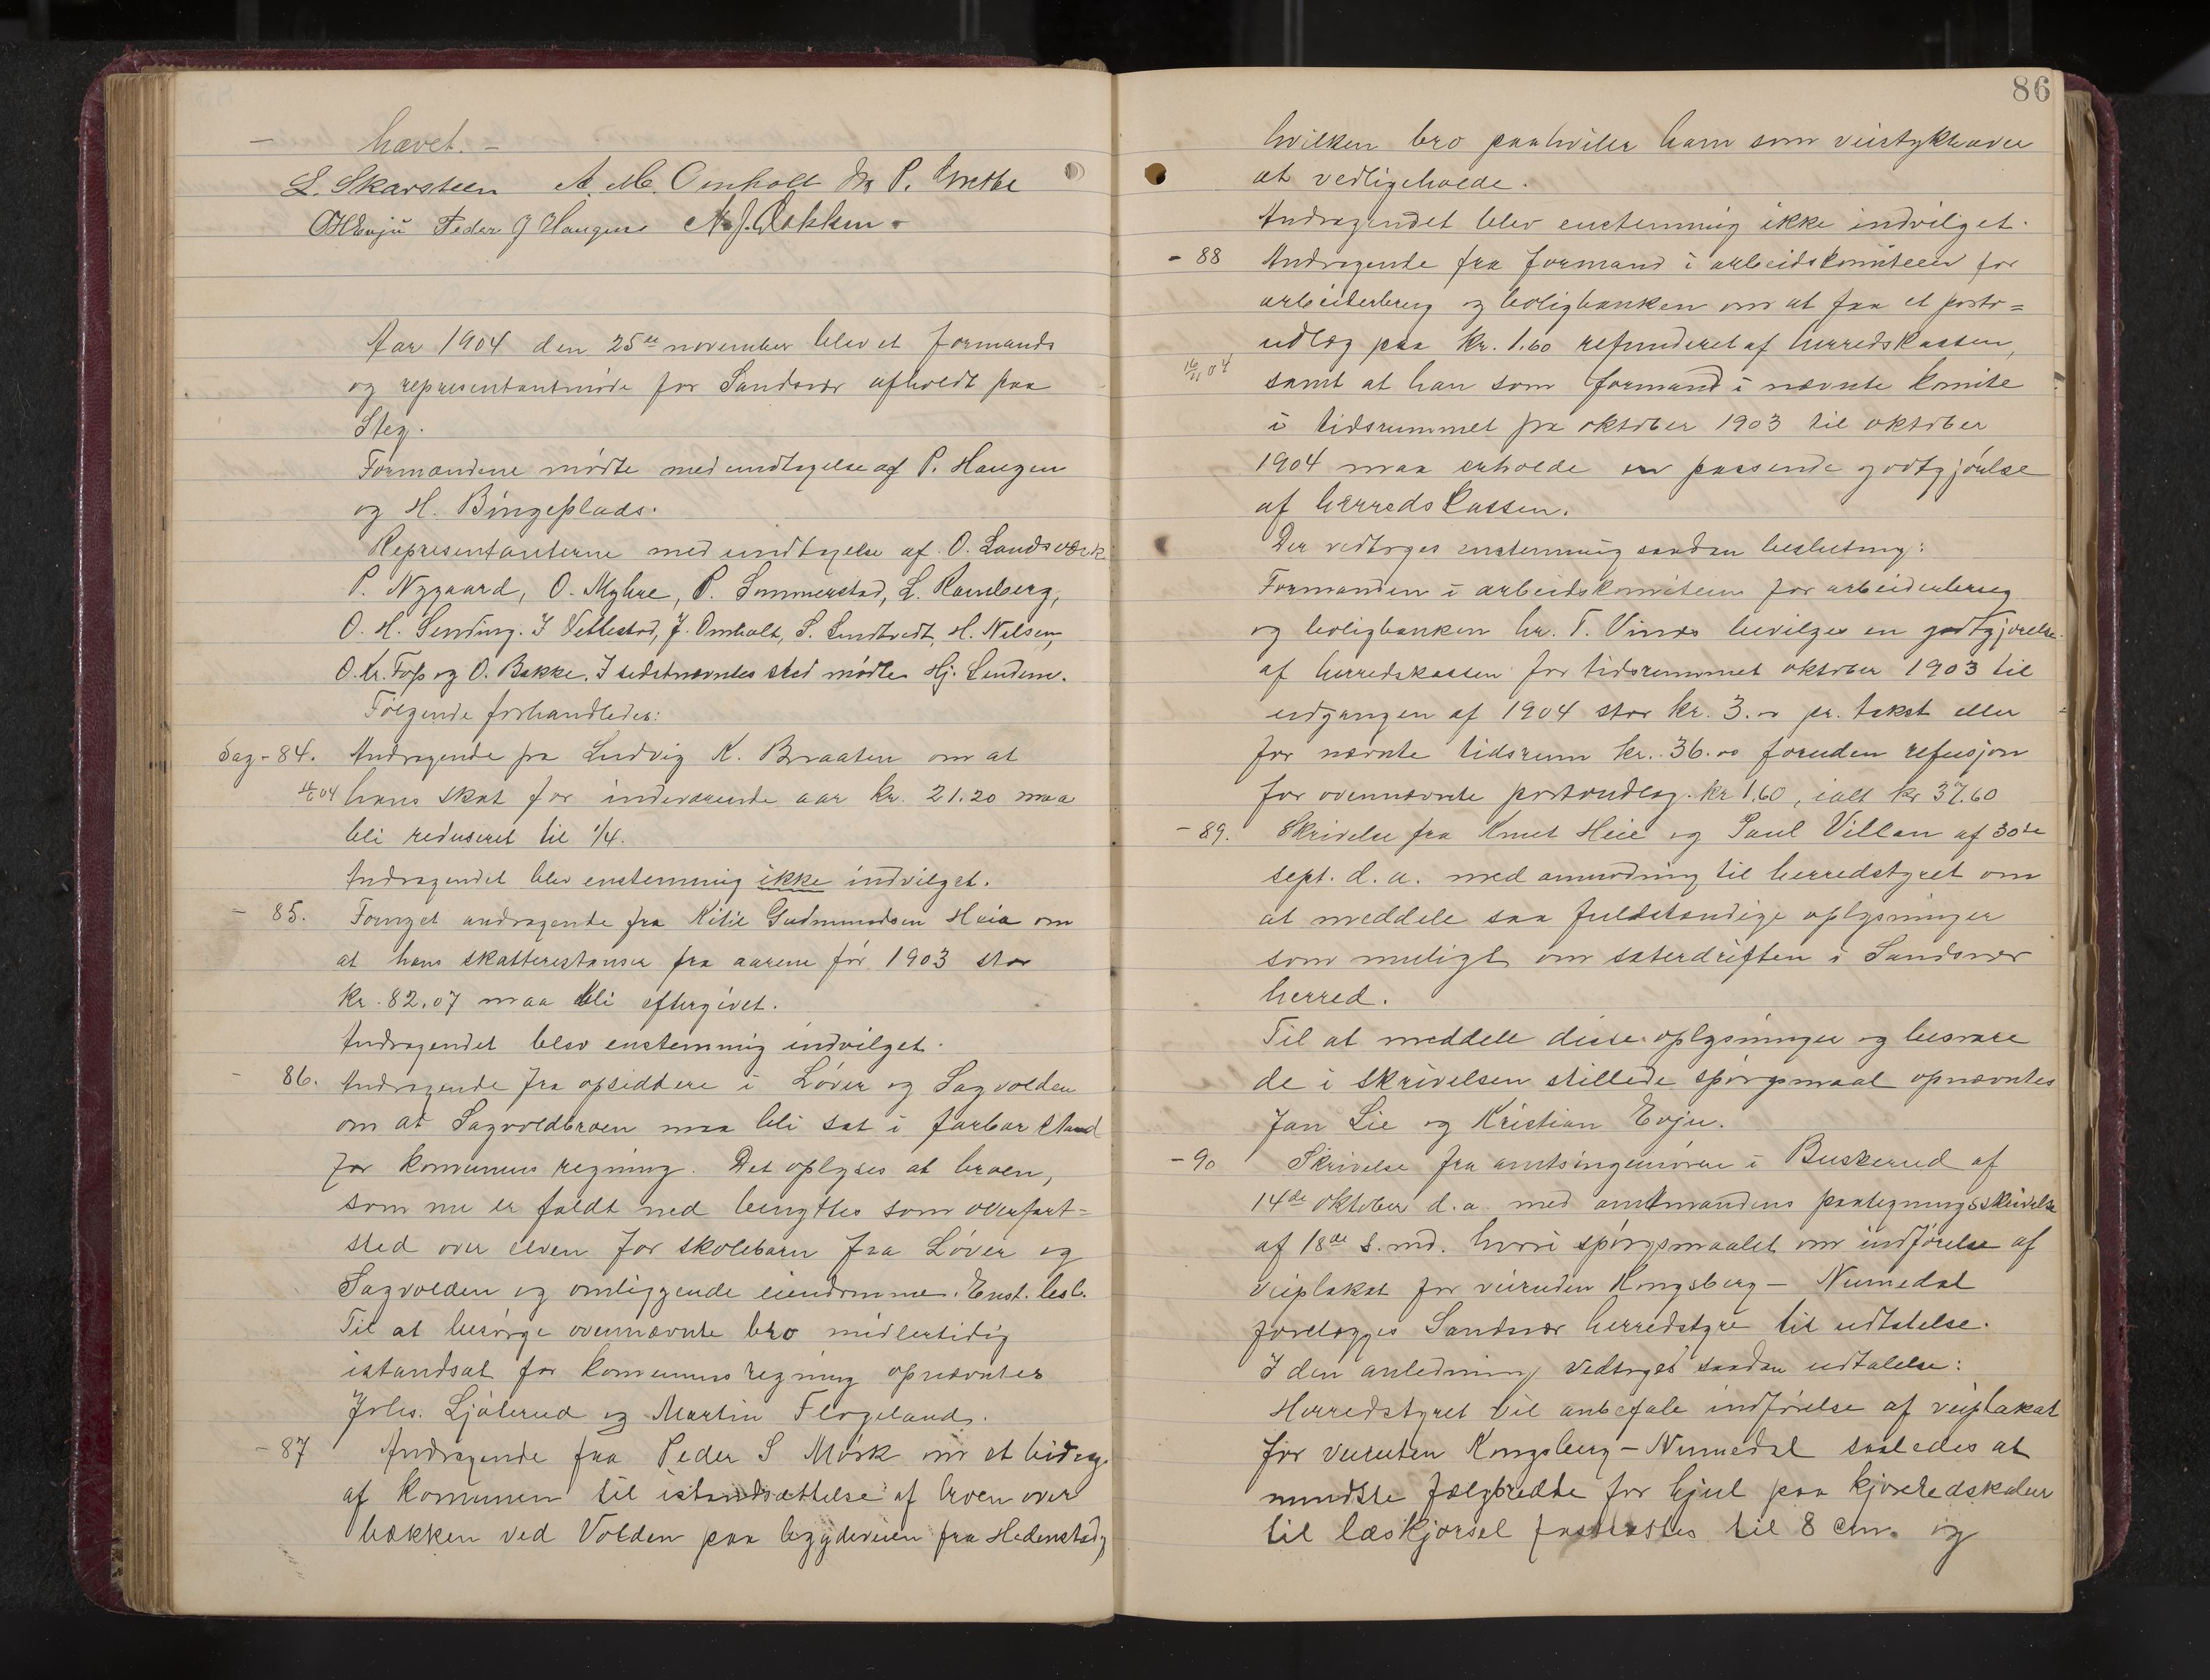 hævet. –
L. Skarsteen A. M. Omholt P. Grette
OHEvju Peder J Haugen A. J. Bakken
Aar 1904 den 25de november blev et formands
og representantmøde for Sandsvær afholdt paa
Steg.
Formændene mødte med undtagelse af P. Haugen
og H. Bingeplads.
Representanterne med undtagelse af O. Landsværk
P. Nygaard, O. Myhre, P. Sommerstad, L. Ramberg,
O. H. Sending. I Vettestad, J. Omholt, S. Sundtvedt, H. Nilsen,
O. Kr. Fop og O. Bakke. I sidstnævntes sted mødte Hj. Lindem.
Følgende forhandledes:
Sag - 84. Andragende fra Ludvig K. Braaten om at
hans skat for indeværende aar kr. 21.20 maa
bli reduseret til 1/4.
Andragendet blev enstemmig ikke indvilget.
– 85. Fornyet andragende fra Kitil Gudmundsen Heia om
at hans skatterestanser fra aarene før 1903 stor
kr. 82.07 maa bli eftergivet.
Andragendet blev enstemmig indvilget.
– 86. Andragende fra opsiddere i Løver og Sagvolden
om at Sagvoldbroen maa bli sat i farbar stand
for komunens regning. Det oplyses at broen,
som nu er faldt ned benyttes som overfart-
sted over elven for skolebarn fra Løver og
Sagvolden og omliggende eiendomme. Enst. besl.
Til at besørge ovennævnte bro midlertidig
istandsat for komunens regning opnævntes
Johs. Ljøterud og Martin Flogeland.
– 87 Andragende fra Peder S Mørk om et bidrag
af komunen til istandsættelse af broen over
bækken ved Volden paa bygdeveien fra Hedenstad,
86
hvilken bro paahviler ham som veistykhaver
at vedligeholde.
Andragendet blev enstemmig ikke indvilget.
- 88 Andragende fra formand i arbeidskomiteen for
arbeiderbrug og boligbanken om at faa et porto=
udlæg paa kr. 1.60 refunderet af herredskassen,
16/11 04
samt at han som formand i nævnte komite
i tidsrummet fra oktober 1903 til oktober
1904 maa erholde en passende godtgjørelse
af herredskassen.
Der vedtoges enstemmig saadan beslutning:
Formanden i arbeidskomiteen for arbeiderbrug
og boligbanken hr. T. Vinæs bevilges en godtgjørelse
af herredskassen for tidsrummet oktober 1903 til
udgangen af 1904 stor kr. 3.00 pr. takst eller
for nævnte tidsrum kr. 36.00 foruden refusjon
for ovennævnte portoudlæg kr 1.60, ialt kr 37.60
– 89. Skrivelse fra Knut Heie og Paul Villan af 30te
sept. d. a. med anmodning til herredstyret om
at meddele saa fuldstændige oplysninger
som muligt om sæterdriften i Sandsvær
herred.
Til at meddele disse oplysninger og besvare
de i skrivelsen stillede spørgsmaal opnævntes
Jan Lie og Kristian Evju.
– 90 Skrivelse fra amtsingeniøren i Buskerud af
14de oktober d. a. med amtmandens paategningsskrivelse
af 18de s. md. hvori spørgsmaalet om indførelse af
veiplakat for veiruden Kongsberg – Numedal
forelægges Sandsvær herredstyre til udtalelse.
I den anledning vedtoges saadan udtalelse:
Herredstyret vil anbefale indførelse af veiplakat
for veiruten Kongsberg – Numedal saaledes at
mindste fælgbredde for hjul paa kjøreredskaber
til læskjørsel fastsættes til 8 cm. og